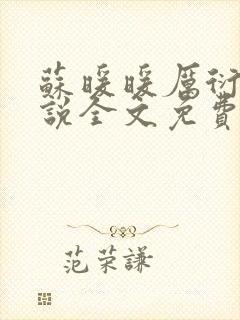 蘇暖暖厲衍
說全文免費
范荣謙